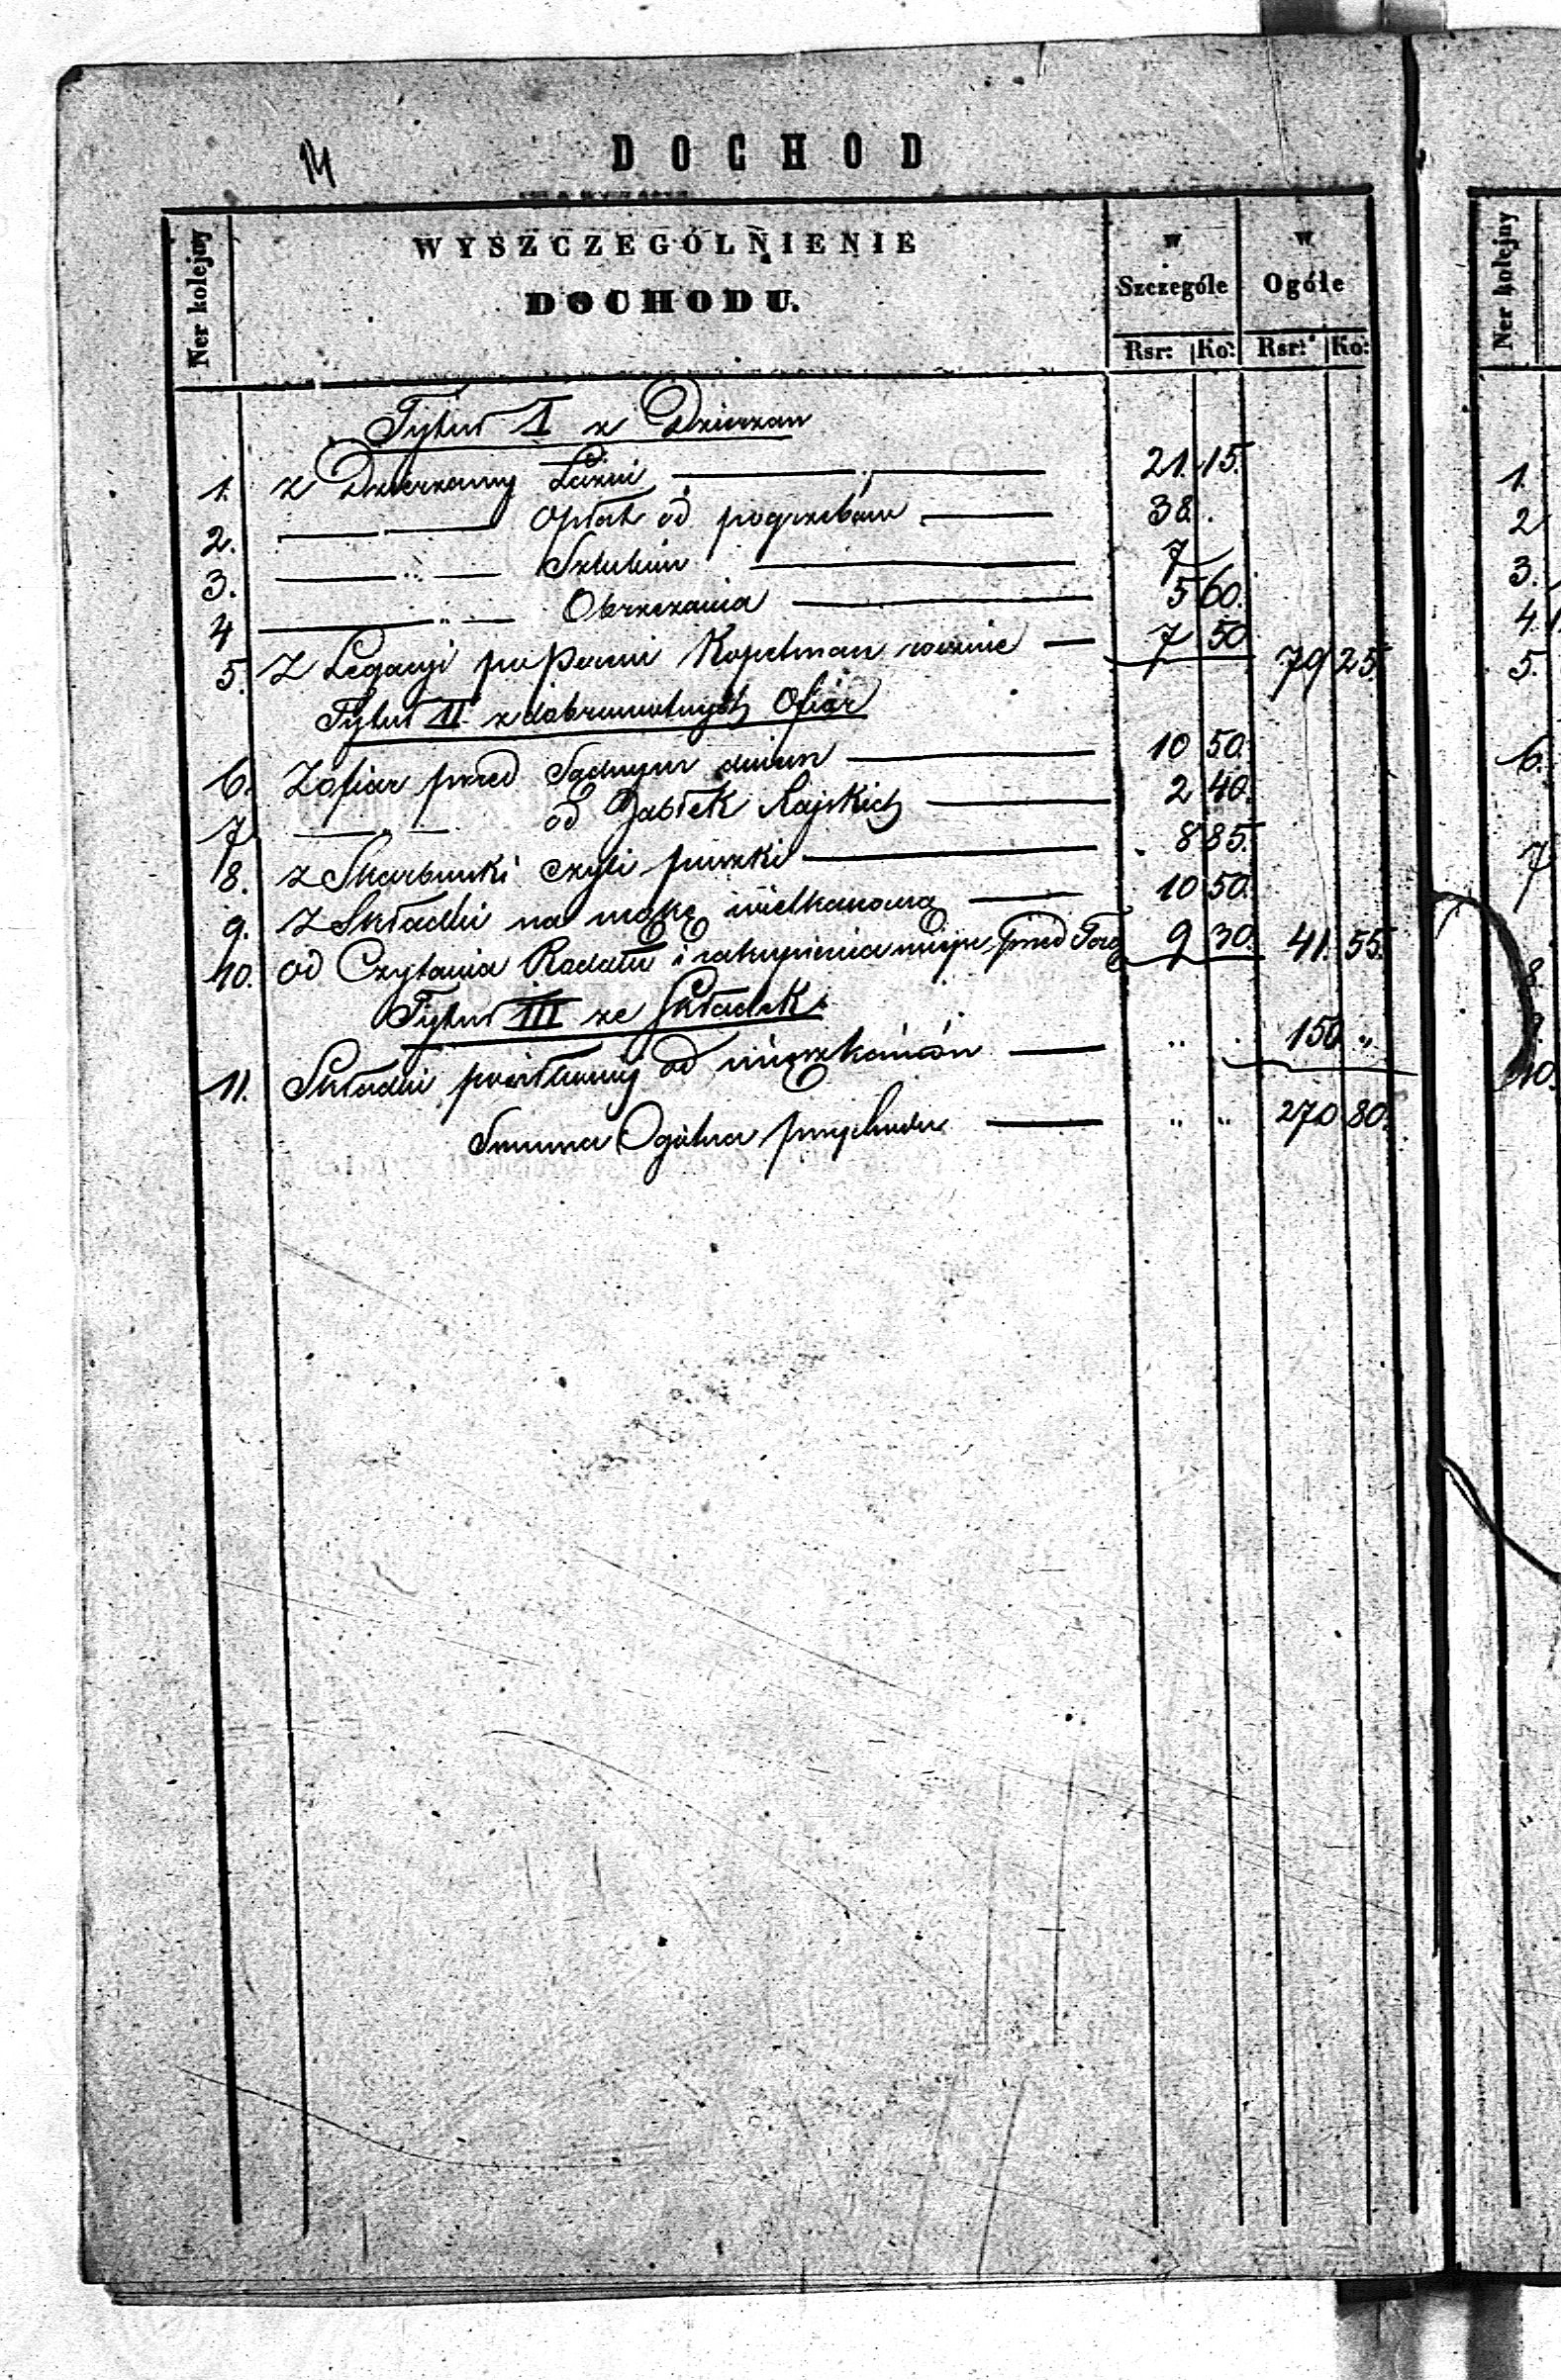 14
DOCHOD
Ner kolejny
WYSZCZEGÓLNIENIE
DOCHODU.
w Szczególe
w Ogóle
Rsr: Ko: Rsr: Ko:
Tytuł I z Dzierżaw
1. z Dzierżawy Łaźni 21. 15.
2. Opłat od pogrzebów 38. .
3. " Szkułów 7
4 " Obrzezania 5 60.
5. Z Legacyi po Pannie Kopelman rocznie 7 50 79 25.
Tytuł II z dobrowolnych Ofiar
6. Z ofiar przed Sądnym dniem 10 50.
7 " od Jabłek Rajskich 2 40.
8. z Skarbonki czyli puszki 8 85.
9. Z Składki na mąkę wielkanocną 10 50.
10. od Czytania Rodału i zakupienia miejsc przed Torą 9 30. 41. 55.
Tytuł III ze Składek
11. Składki od mieszkańców " . 150 "
Summa Ogólna przychodu " " 270 80.
Ner kolejny
1.
2
3.
4.
5.
6.
7
8.
9.
10.